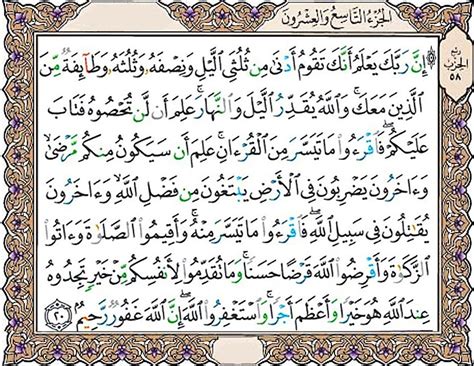 الجزء التاسع والعشرون
ربع
الحزب
٥٨
إِنَّ رَبَّكَ يَعْلَمُ أَنَّكَ تَقُومُ أَدْنَىٰ مِن ثُلُثَيِ ٱلَّيْلِ وَنِصْفَهُۥ وَثُلُثَهُۥ وَطَآئِفَةٌ مِّنَ
ٱلَّذِينَ مَعَكَ ۚ وَٱللَّهُ يُقَدِّرُ ٱلَّيْلَ وَٱلنَّهَارَ ۚ عَلِمَ أَن لَّن تُحْصُوهُ فَتَابَ
عَلَيْكُمْ ۖ فَٱقْرَءُوا۟ مَا تَيَسَّرَ مِنَ ٱلْقُرْءَانِ ۚ عَلِمَ أَن سَيَكُونُ مِنكُم مَّرْضَىٰ ۙ
وَءَاخَرُونَ يَضْرِبُونَ فِى ٱلْأَرْضِ يَبْتَغُونَ مِن فَضْلِ ٱللَّهِ ۙ وَءَاخَرُونَ
يُقَٰتِلُونَ فِى سَبِيلِ ٱللَّهِ ۖ فَٱقْرَءُوا۟ مَا تَيَسَّرَ مِنْهُ ۚ وَأَقِيمُوا۟ ٱلصَّلَوٰةَ وَءَاتُوا۟
ٱلزَّكَوٰةَ وَأَقْرِضُوا۟ ٱللَّهَ قَرْضًا حَسَنًا ۚ وَمَا تُقَدِّمُوا۟ لِأَنفُسِكُم مِّنْ خَيْرٍ تَجِدُوهُ
عِندَ ٱللَّهِ هُوَ خَيْرًا وَأَعْظَمَ أَجْرًا ۚ وَٱسْتَغْفِرُوا۟ ٱللَّهَ ۖ إِنَّ ٱللَّهَ غَفُورٌ رَّحِيمٌۢ ٢٠